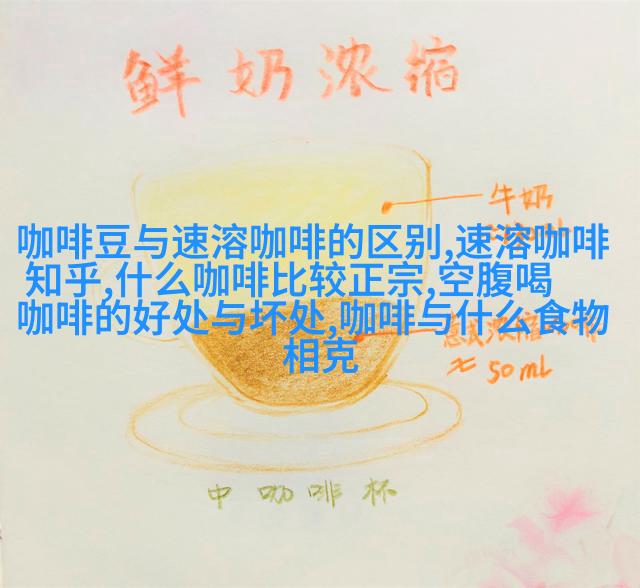 鲜奶浓缩
牛奶
咖啡豆与速溶咖啡的区别,速溶咖啡
知乎,什么咖啡比较正宗,空腹喝
咖啡的好处与坏处,咖啡与什么食物
相克
≈ 50mL
中咖啡杯